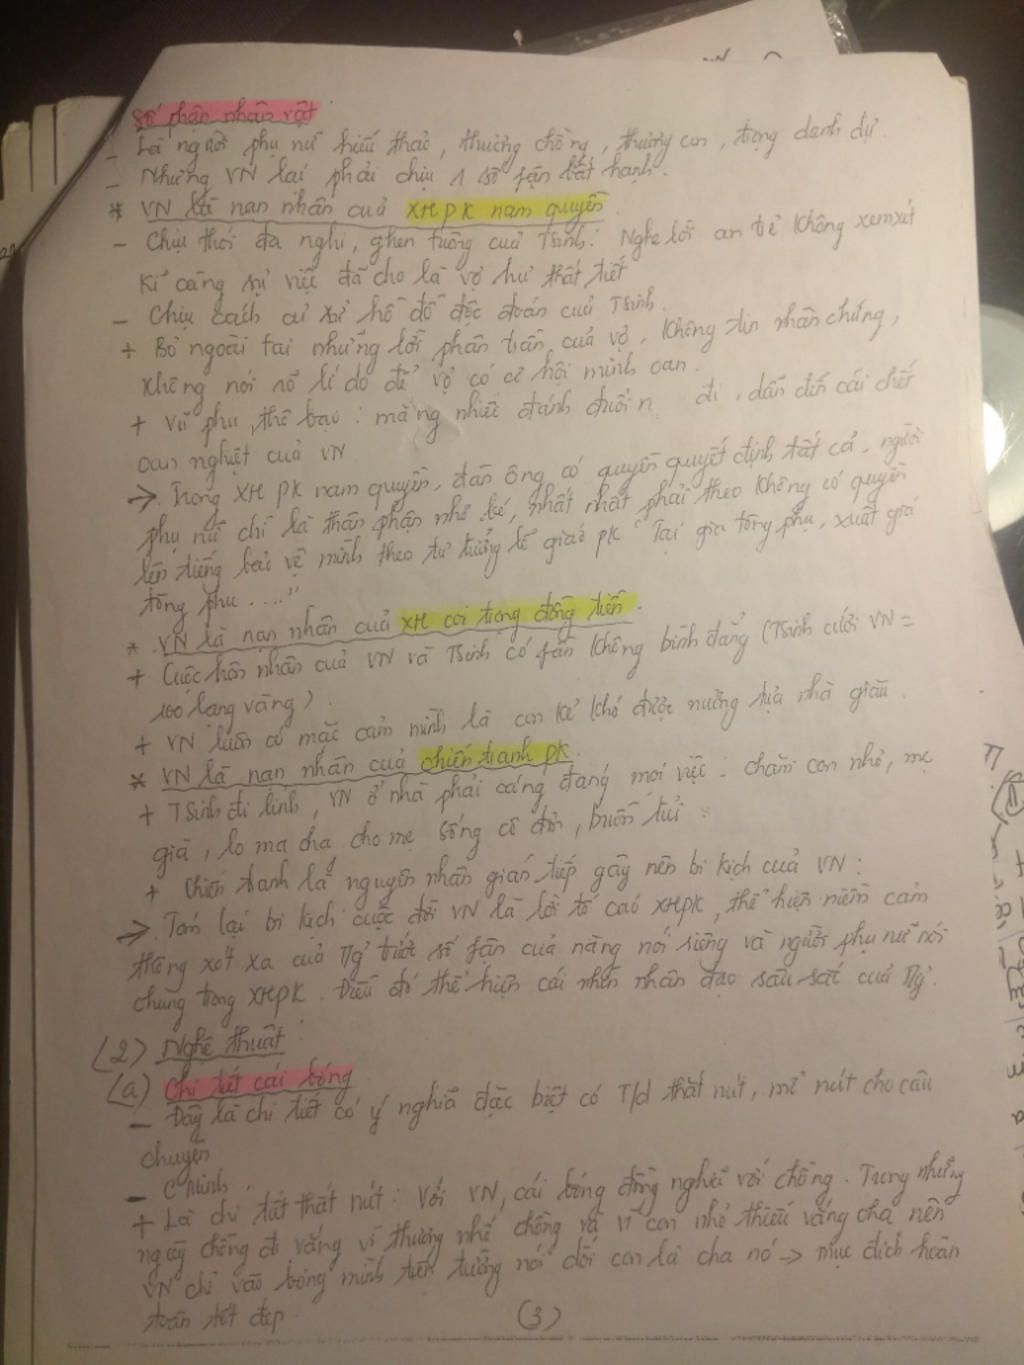 Số phận nhân vật
- Là người phụ nữ hiếu thảo, thương chồng, thương con, trọng danh dự.
- Nhưng VN lại phải chịu 1 số fận bất hạnh.
* VN là nạn nhân của XHPK nam quyền
- Chịu thói đa nghi, ghen tuông của Tsinh: Nghe lời con trẻ không xem xét
kĩ càng sự việc đã cho là vợ hư thất tiết
- Chịu cách cư xử hồ đồ độc đoán của Tsinh.
+ Bỏ ngoài tai những lời phân trần của vợ, không tin nhân chứng,
không nói rõ lí do để vợ có cơ hội minh oan.
+ Vũ phu, thô bạo: mắng nhiếc đánh đuổi đi, dẫn đến cái chết
oan nghiệt của VN
→ Trong XHPK nam quyền, đàn ông có quyền quyết định tất cả, người
phụ nữ chỉ là thân phận nhỏ bé, nhất nhất phải theo không có quyền
lên tiếng bảo vệ mình theo tư tưởng lễ giáo pk "Tại gia tòng phụ, xuất giá
tòng phu ...."
* VN là nạn nhân của XH coi trọng đồng tiền.
+ Cuộc hôn nhân của VN và Tsinh có fần không bình đẳng (Tsinh cưới VN =
100 lạng vàng)
+ VN luôn có mặc cảm mình là con kẻ khó được nương tựa nhà giàu.
* VN là nạn nhân của chiến tranh pk.
+ Tsinh đi lính, VN ở nhà phải cáng đáng mọi việc: chăm con nhỏ, mẹ
già, lo ma chay cho mẹ sống cô đơn, buồn tủi
+ Chiến tranh là nguyên nhân gián tiếp gây nên bi kịch của VN:
→ Tóm lại bi kịch cuộc đời VN là lời tố cáo XHPK, thể hiện niềm cảm
thông xót xa của Tg' trước số fận của nàng nói riêng và người phụ nữ nói
chung trong XHPK. Điều đó thể hiện cái nhìn nhân đạo sâu sắc của Tg'.
(2) Nghệ thuật:
(a) Chi tiết cái bóng
- Đây là chi tiết có ý nghĩa đặc biệt có T/d thắt nút, mở nút cho câu
chuyện
- C'minh.
+ Là chi tiết thắt nút: Với VN, cái bóng đồng nghĩa với chồng. Trong những
ngày chồng đi vắng vì thương nhớ chồng và vì con nhỏ thiếu vắng cha nên
VN chỉ vào bóng mình trên tường nói dối con là cha nó → mục đích hoàn
toàn tốt đẹp.
(3)